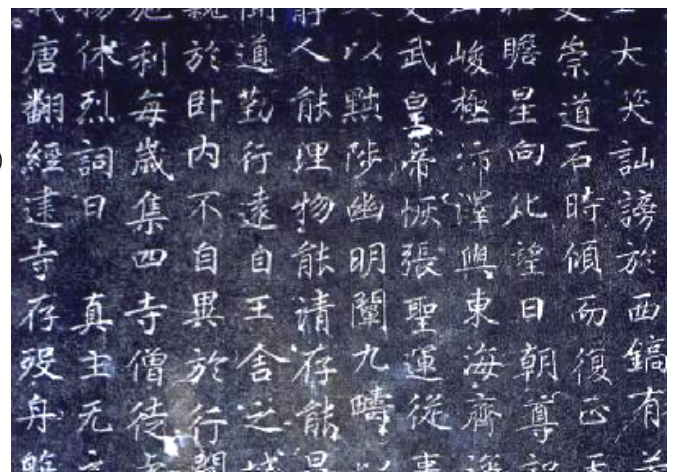 大笑訕謗於西鎬有
崇道石時傾而復正
瞻星向化望日朝尊
峻極沛澤與東海齊
武皇帝恢張聖運從
以黜陟幽明闡九疇
人能理物能清存能
道勤行遠自王舍之
於臥內不自異於行
利每歲集四寺僧徒
休烈詞曰 真主无
唐翻經建寺存歿舟